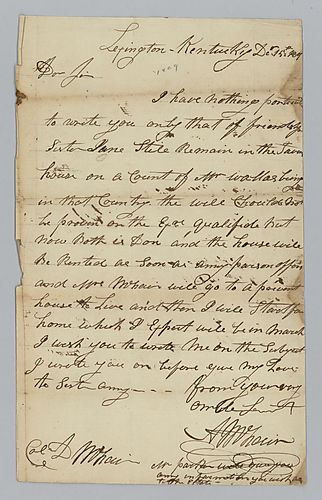 Lexington - Kentucky Dec 15th 1809
1809
Dr Sir
I have nothing
to write you only that of friendship
Sister Jane Stile Remain in the
house on a Count of Mr
in that Country the will
be proven on the Qualifide but
Now Both is Don and the house will
Be Rented as Soon as any parson offers
and Mr McNair will Go to a
house to Live and then I will Start for
home which I Expect will be in March
I wish you to wrote Me on the Subject
I wrote you on before give my Love
to Sister amy
from your
A McNair
Col D McNair
Mr parker will Give you
any information you wish